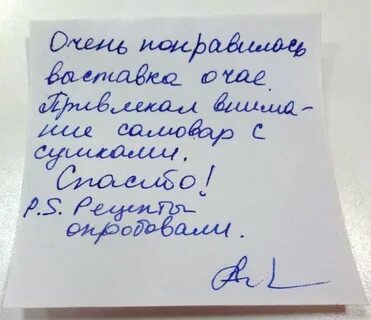 Очень понравилась
выставка о чае.
Привлекал внима-
ние самовар с
сушками.
Спасибо!
P.S. Рецепты
опробовали.